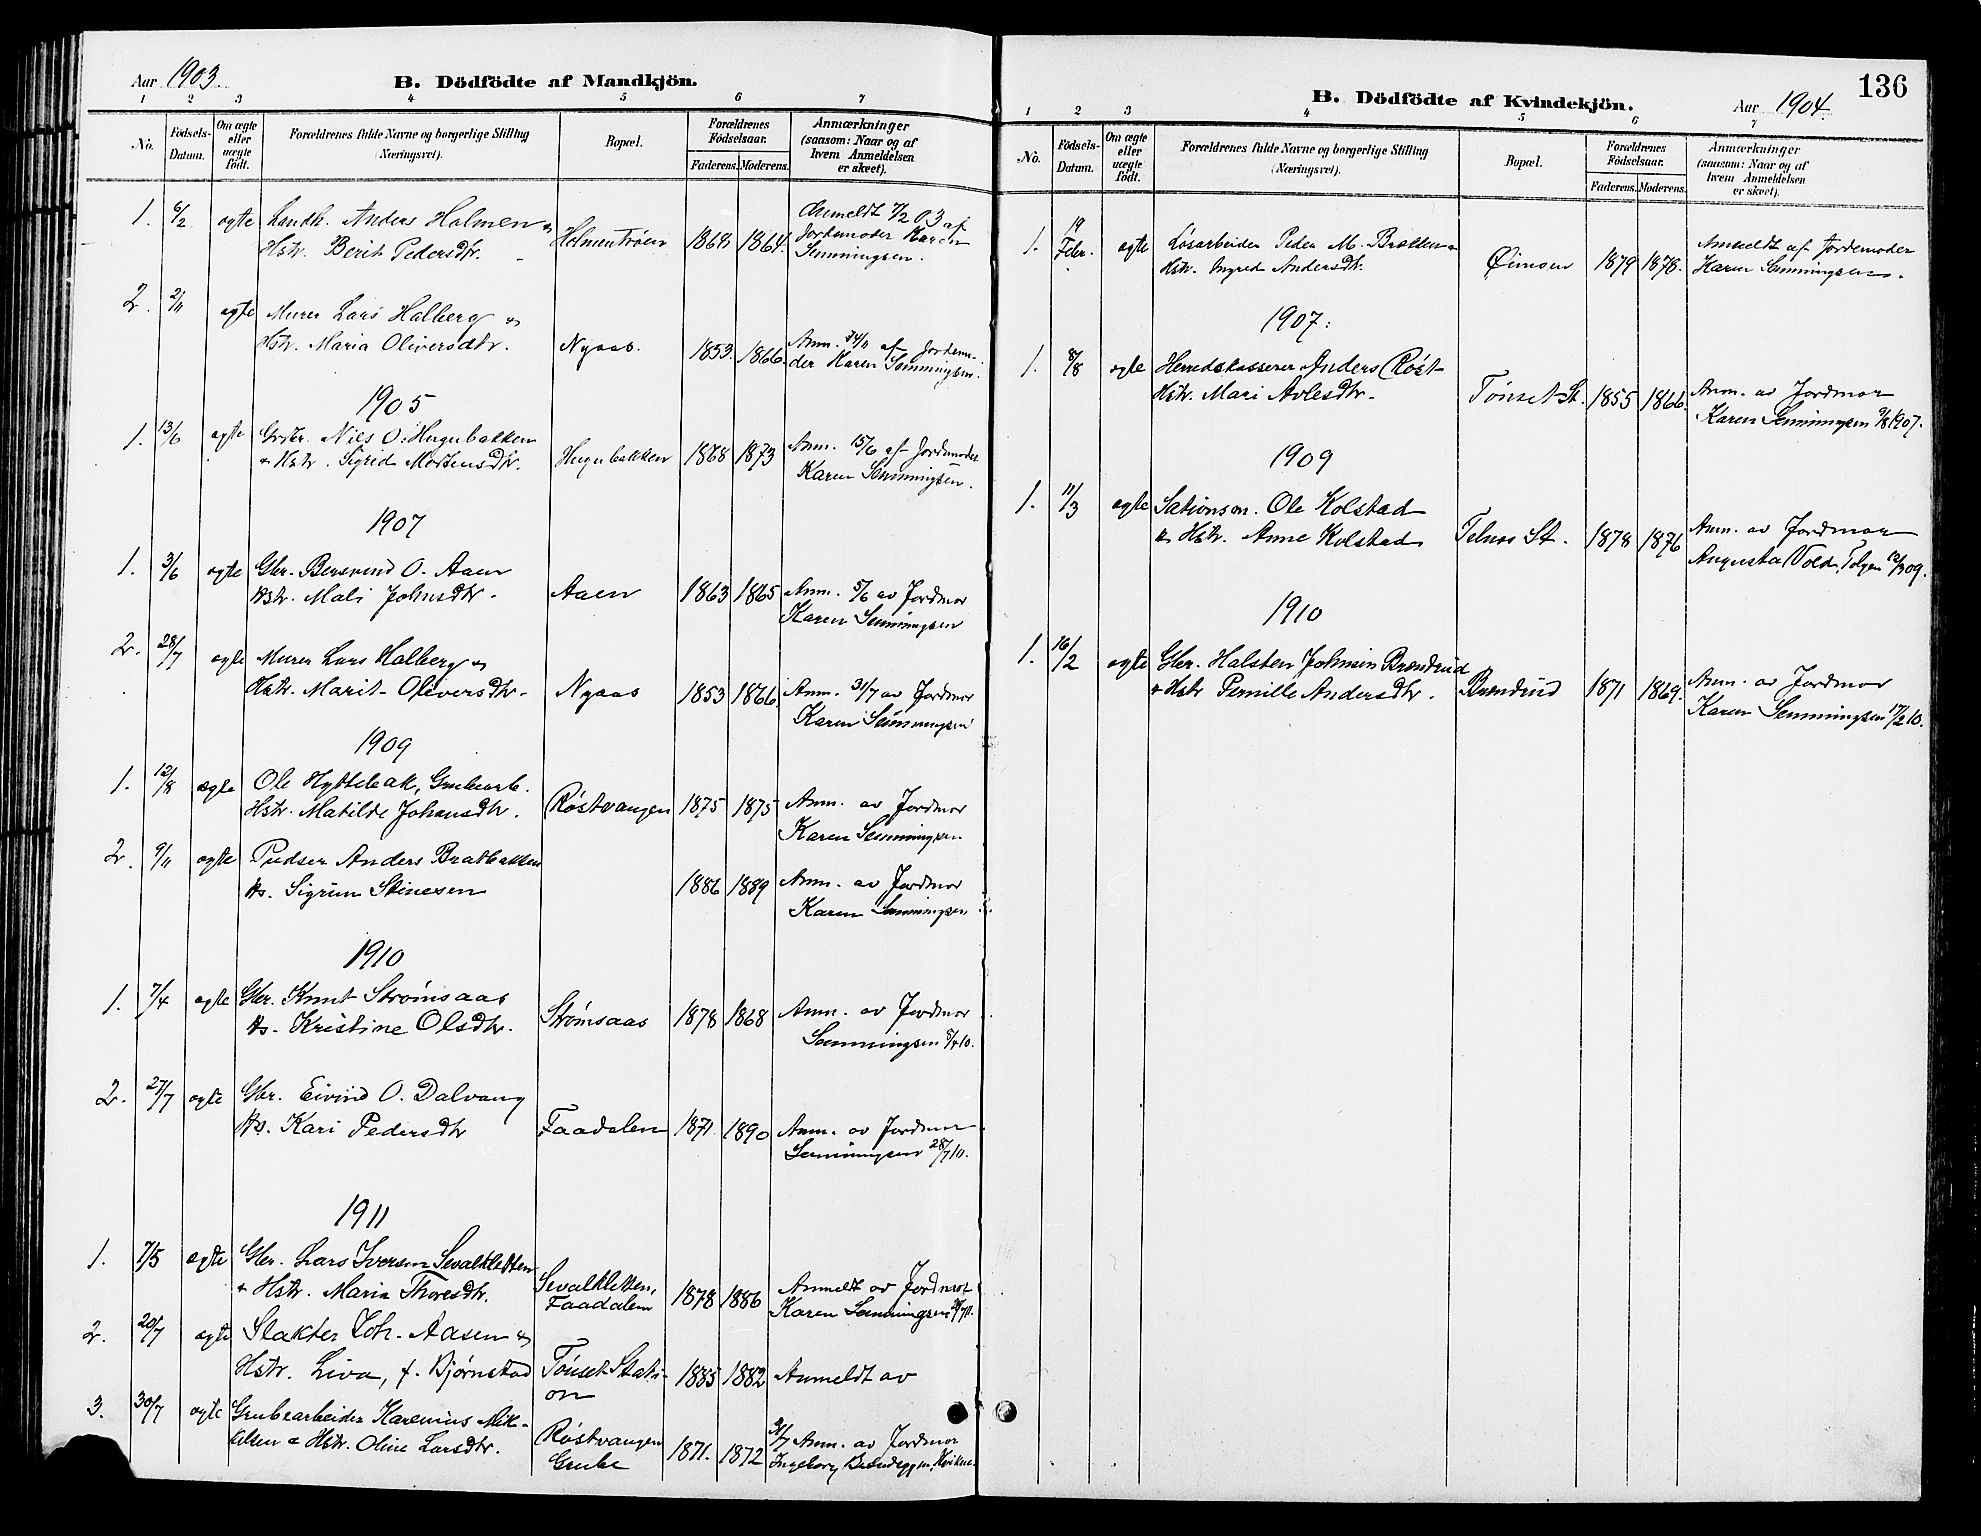 Aar 1903. B. Dödfödte af Mandkjön.
1 2 3 4 5 6 7
No. Födsels-Datum. Om ægte eller uægte födt. Forældrenes fulde Navne og borgerlige Stilling (Næringsvei). Bopæl. Forældrenes Födselsaar. Faderens. Moderens. Anmærkninger (saasom: Naar og af hvem Anmeldelsen er skeet).
1. 6/2 ægte Landh. Anders Holmen & Anmeldt 7/2 03 af
Hstr. Berit Pedersdtr. Holmentrøen 1869 1864. Jordemoder Karen
Semmingsen.
2. 2/11 ægte Murer Lars Halberg &
Hstr. Maria Oliversdtr. Nyaas. 1853. 1866. Anm. 24/11 af Jordemo-
der Karen Semmingsen.
1905
1. 13/6 ægte Nils O. Hugubakken
& Hstr. Sigrid Mortensdtr. Hugubakken 1868 1873 Anm. 15/6 af Jordemoder
Karen Semmingsen.
1907
1. 3/6 ægte Gbr. Berevend O. Aaen
Hstr. Mali Johnsdtr. Aaen 1863 1865 Anm. 5/6 av Jordmor
Karen Semmingsen
2. 28/7 ægte Murer Lars Halberg &
Hstr. Marit Oliversdtr. Nyaas 1853 1866 Anm. 31/7 av Jordmor
Karen Semmingsen
1909
1. 12/8 ægte Ole Hyttebak, Grubearb.
Hstr. Matilde Johansdtr. Røstvangen 1875 1875 Anm. av Jordmor
Karen Semmingsen
2. 9/11 ægte Pudser Anders Bratbakken
Hs. Sigrun Stinesen 1886 1889 Anm. av Jordmor
Karen Semmingsen
1910
1. 7/4 ægte Gbr. Knut Strømsaas
Hs. Kristine Olsdtr. Strømsaas 1878 1868 Anm. av Jordmor
Semmingsen 8/4 10.
2. 27/7 ægte Gbr. Eivind O. Dalvang
Hs. Kari Pedersdtr Faadalen 1871 1890 Anm. av Jordmor
Semmingsen 28/7 10.
1911
1. 7/5 ægte Gbr. Lars Iversen Sevalkletten
& Hstr. Maria Thoresdtr. Sevalkletten, Faadalen 1878 1886 Anmeldt av Jordmor
Karen Semmingsen
2. 20/7 ægte Slakter Joh. Aasen &
Hstr. Liva, f. Bjørnstad Tønset Stati-
on 1885 1882 Anmeldt av
3. 30/7 ægte Grubearbeider Karenius Mik-
kelsen & Hstr. Oline Larsdtr. Røstvangen
Grube 1871. 1872 31/7 Anm. av Jordmor
Ingeborg Brændeggen, Kvikne.
136
B. Dödfödte af Kvindekjön. Aar 1904.
1 2 3 4 5 6 7
No. Födsels-Datum. Om ægte eller uægte födt. Forældrenes fulde Navne og borgerlige Stilling (Næringsvei). Bopæl. Forældrenes Födselsaar. Faderens. Moderens. Anmærkninger (saasom: Naar og af hvem Anmeldelsen er skeet).
1. 19 Febr. ægte Løsarbeider Peder M. Brokken &
Hstr. Ingred Andersdtr. Øimoen 1879 1878. Anmeldt af Jordemoder
Karen Semmingsen.
1907:
1. 8/8 ægte Herredskasserer Anders Røst
Hstr. Mari Avlesdtr. Tønset St. 1855 1866. Anm. av Jordmor
Karen Semmingsen 9/8 1907.
1909
1. 11/3 ægte Sationsm. Ole Kolstad
& Hstr. Anne Kolstad Telnes St. 1878 1876 Anm. av Jordmor
Augusta Vold, Tolgen 12/3 09.
1910
1. 16/2 ægte Gbr. Halsten Johnsen Brendrud
& Hstr Pernille Andersdtr. Brendrud 1871 1869. Anm. av Jordmor
Karen Semmingsen 17/2 10.